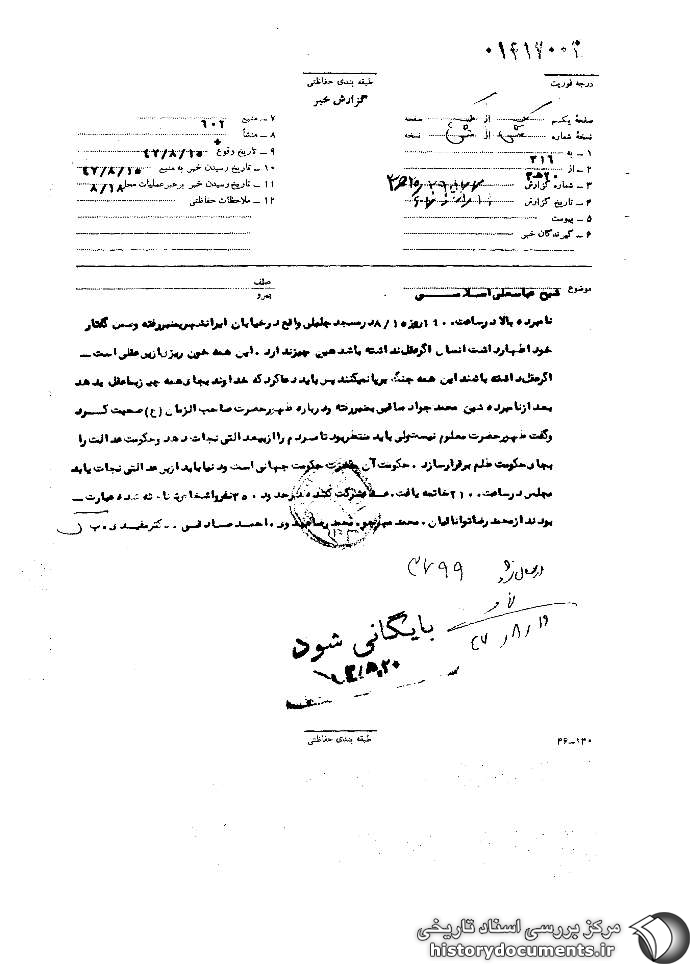 درجه فوریت
طبقه بندی حفاظتی
گزارش خبر
صفحه یکم از صفحه
نسخه شماره از نسخه
۱ ـ به ۳۱۶
۲ ـ از
۳ ـ شماره گزارش
۴ ـ تاریخ گزارش
۵ ـ پیوست
۶ ـ گیرندگان خبر
۷ ـ منبع ۶۰۲
۸ ـ منشأ
۹ ـ تاریخ وقوع ۴۷/۸/۱۵
۱۰ ـ تاریخ رسیدن خبر به منبع ۴۷/۸/۱۵
۱۱ ـ تاریخ رسیدن خبر برهبر عملیات محل ۸/۱۸
۱۲ ـ ملاحظات حفاظتی
موضوع شیخ عباسعلی اسلامی
عطف
پیرو
نامبرده بالا در ساعت روز ۸/۱۵ در مسجد جلیلی واقع در خیابان ایرانشهر بمنبر رفته و ضمن گفتار
خود اظهار داشت انسان اگر عقل نداشته باشد هیچ چیز ندارد . این همه خون ریزی از بی عقلی است ـ
اگر عقل داشته باشند این همه جنگ برپا نمیکنند پس باید دعا کرد که خداوند بجای همه چیز بما عقل بدهد
بعد از نامبرده شیخ محمد جواد مناقبی بمنبر رفته و درباره ظهور حضرت صاحب الزمان (ع) صحبت کرد
و گفت ظهور حضرت معلوم نیست ولی باید منتظر بود تا مردم را از بیعدالتی نجات دهد و حکومت عدالت را
بجای حکومت ظلم برقرار سازد . حکومت آن حضرت حکومت جهانی است و دنیا باید از بی عدالتی نجات یابد
مجلس در ساعت ۲۱۰۰ خاتمه یافت . عده شرکت کننده در حدود ۳۵۰ نفر و اشخاص شناخته شده عبارت ـ
بودند از محمد رضا توانائیان . محمد . احمد صادقی . دکتر مفیدی
۳۷۹۹
۴۷/۸/۱۹
بایگانی شود
طبقه بندی حفاظتی
۴۶-۱۳۰
مرکز بررسی اسناد تاریخی
historydocuments.ir